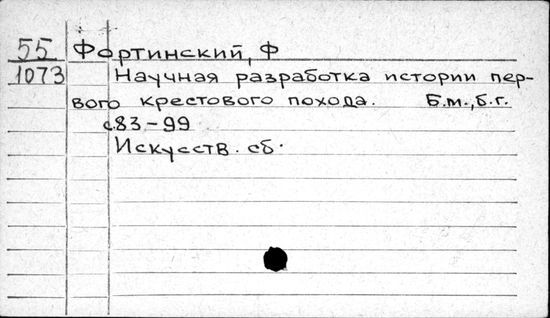 55 Фортинский, Ф
1073 Научная разработка истории пер-
вого крестового похода. Б.м., б.г.
с.83-99
Искусств. сб.